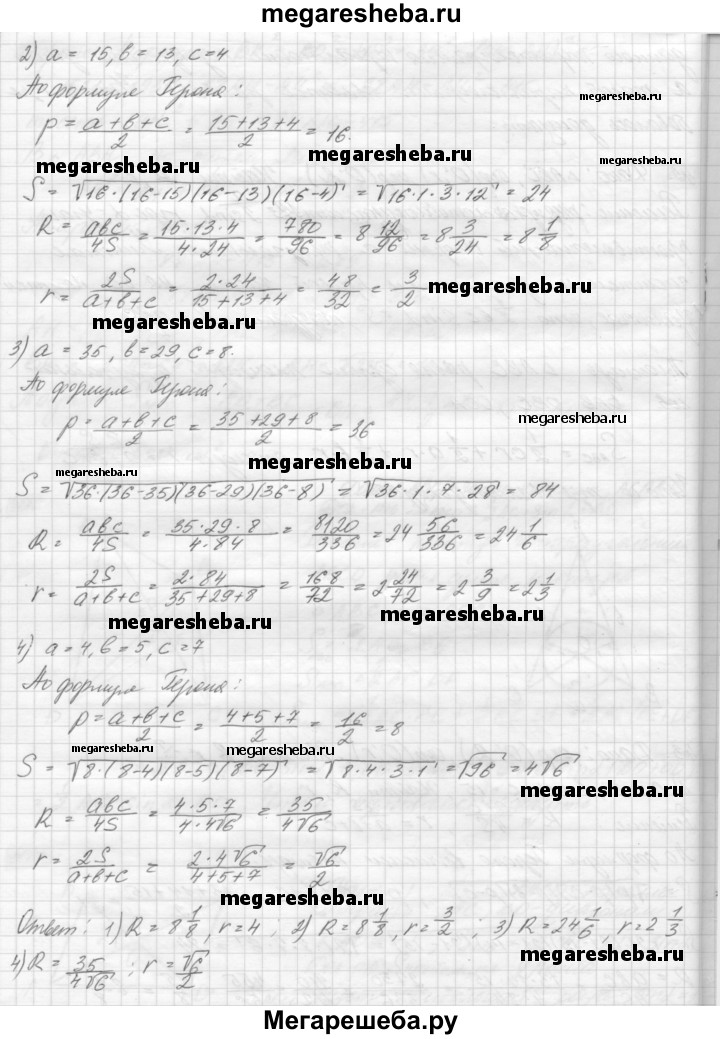 megaresheba.ru
2) a = 15, b = 13, c = 4
По формуле Герона:
megaresheba.ru
p = (a+b+c)/2 = (15+13+4)/2 = 16.
megaresheba.ru
megaresheba.ru
S = √(16·(16-15)(16-13)(16-4)) = √(16·1·3·12) = 24
R = abc/4S = (15·13·4)/(4·24) = 780/96 = 8 12/96 = 8 3/24 = 8 1/8
megaresheba.ru
r = 2S/(a+b+c) = (2·24)/(15+13+4) = 48/32 = 3/2
megaresheba.ru
megaresheba.ru
3) a = 35, b = 29, c = 8.
По формуле Герона:
p = (a+b+c)/2 = (35+29+8)/2 = 36
megaresheba.ru
megaresheba.ru
megaresheba.ru
S = √(36·(36-35)(36-29)(36-8)) = √(36·1·7·28) = 84
R = abc/4S = (35·29·8)/(4·84) = 8120/336 = 24 56/336 = 24 1/6
megaresheba.ru
r = 2S/(a+b+c) = (2·84)/(35+29+8) = 168/72 = 2 24/72 = 2 3/9 = 2 1/3
megaresheba.ru
4) a = 4, b = 5, c = 7
megaresheba.ru
По формуле Герона:
p = (a+b+c)/2 = (4+5+7)/2 = 16/2 = 8
megaresheba.ru
megaresheba.ru
S = √(8·(8-4)(8-5)(8-7)) = √(8·4·3·1) = √96 = 4√6
megaresheba.ru
R = abc/4S = (4·5·7)/(4·4√6) = 35/(4√6)
r = 2S/(a+b+c) = (2·4√6)/(4+5+7) = √6/2
megaresheba.ru
Ответ: 1) R = 8 1/8, r = 4; 2) R = 8 1/8, r = 3/2; 3) R = 24 1/6, r = 2 1/3
megaresheba.ru
4) R = 35/(4√6); r = √6/2
Мегарешеба.ру